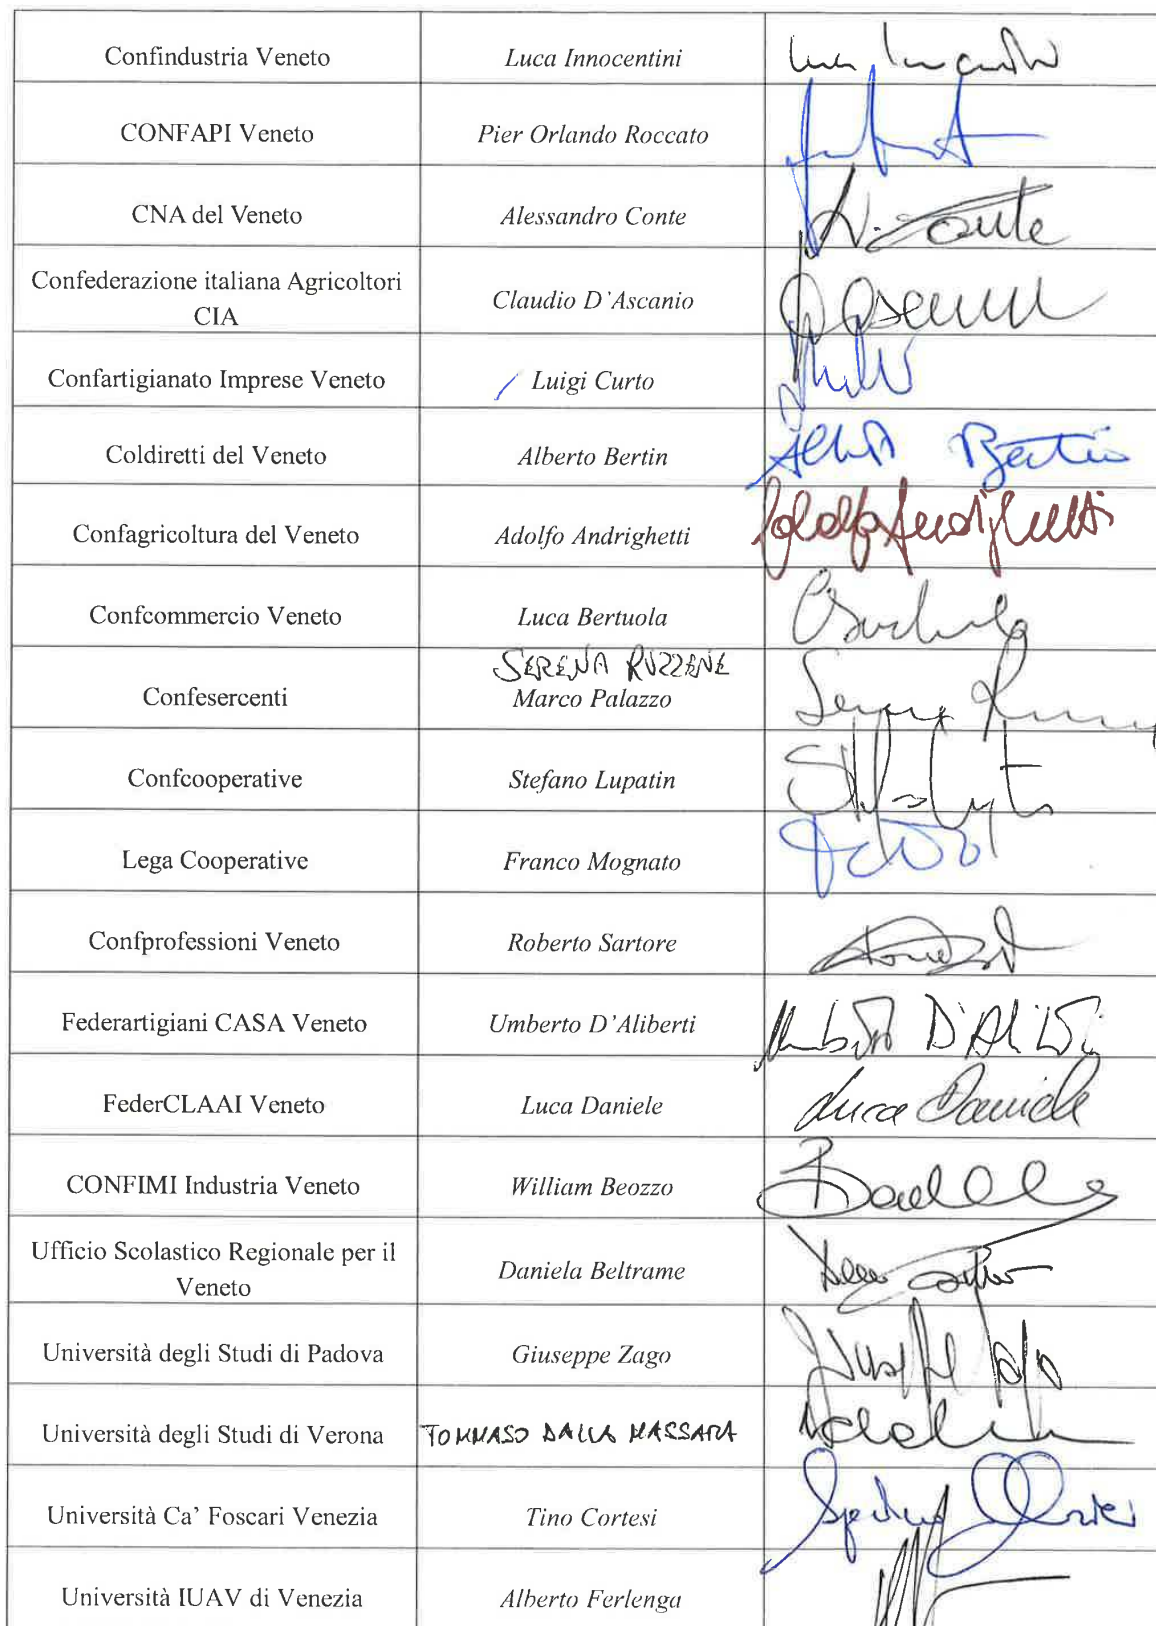 Confindustria Veneto Luca Innocentini
CONFAPI Veneto Pier Orlando Roccato
CNA del Veneto Alessandro Conte
Confederazione italiana Agricoltori
CIA Claudio D'Ascanio
Confartigianato Imprese Veneto Luigi Curto
Coldiretti del Veneto Alberto Bertin
Confagricoltura del Veneto Adolfo Andrighetti
Confcommercio Veneto Luca Bertuola
SERENA RUZZENE
Confesercenti Marco Palazzo
Confcooperative Stefano Lupatin
Lega Cooperative Franco Mognato
Confprofessioni Veneto Roberto Sartore
Federartigiani CASA Veneto Umberto D'Aliberti
FederCLAAI Veneto Luca Daniele Luca Daniele
CONFIMI Industria Veneto William Beozzo
Ufficio Scolastico Regionale per il
Veneto Daniela Beltrame
Università degli Studi di Padova Giuseppe Zago
Università degli Studi di Verona TOMMASO DALLA MASSARA
Università Ca' Foscari Venezia Tino Cortesi
Università IUAV di Venezia Alberto Ferlenga